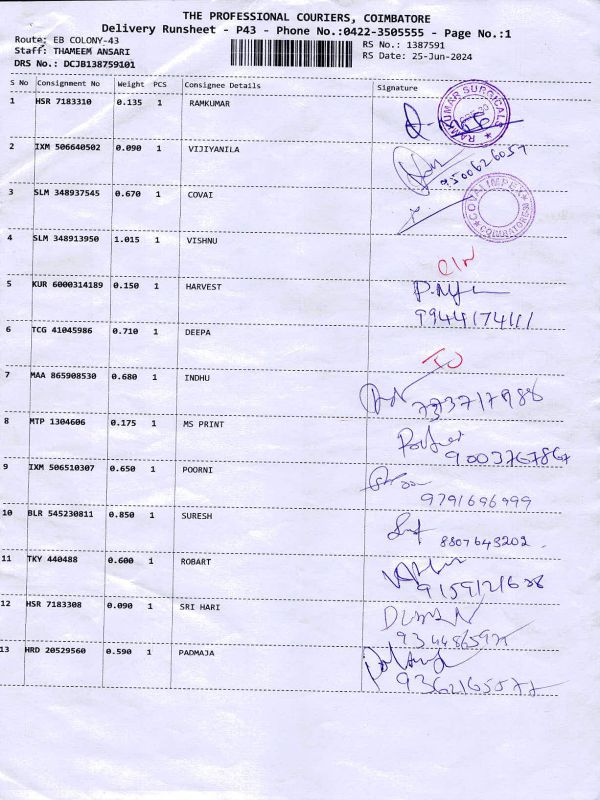 THE PROFESSIONAL COURIERS, COIMBATORE
Delivery Runsheet - P43 - Phone No.:0422-3505555 - Page No.:1
Route: EB COLONY-43
Staff: THAMEEM ANSARI
DRS No.: DCJB138759101
RS No.: 1387591
RS Date: 25-Jun-2024
S No Consignment No Weight PCS Consignee Details Signature
1 HSR 7183310 0.135 1 RAMKUMAR
RAMKUMAR SURGICALS
2 IXM 506640502 0.090 1 VIJIYANILA
9500626059
3 SLM 348937545 0.670 1 COVAI
COVAI IMPEX
COIMBATORE
4 SLM 348913950 1.015 1 VISHNU
5 KUR 6000314189 0.150 1 HARVEST
6 TCG 41045986 0.710 1 DEEPA
7 MAA 865908530 0.680 1 INDHU
8 MTP 1304606 0.175 1 MS PRINT
9003767867
9 IXM 506510307 0.650 1 POORNI
9791696999
10 BLR 545230811 0.850 1 SURESH
8807643202
11 TKY 440488 0.600 1 ROBART
12 HSR 7183308 0.090 1 SRI HARI
13 HRD 20529560 0.590 1 PADMAJA